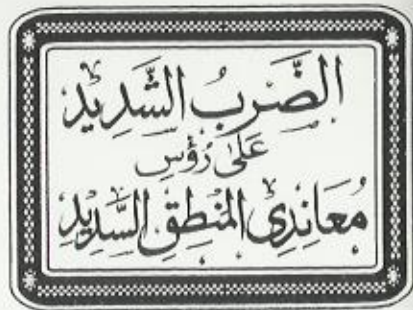 الضَّرْبُ الشَّدِيْدُ
عَلٰى رُؤُسِ
مُعَانِدِي المَنْطِقِ السَّدِيْدِ